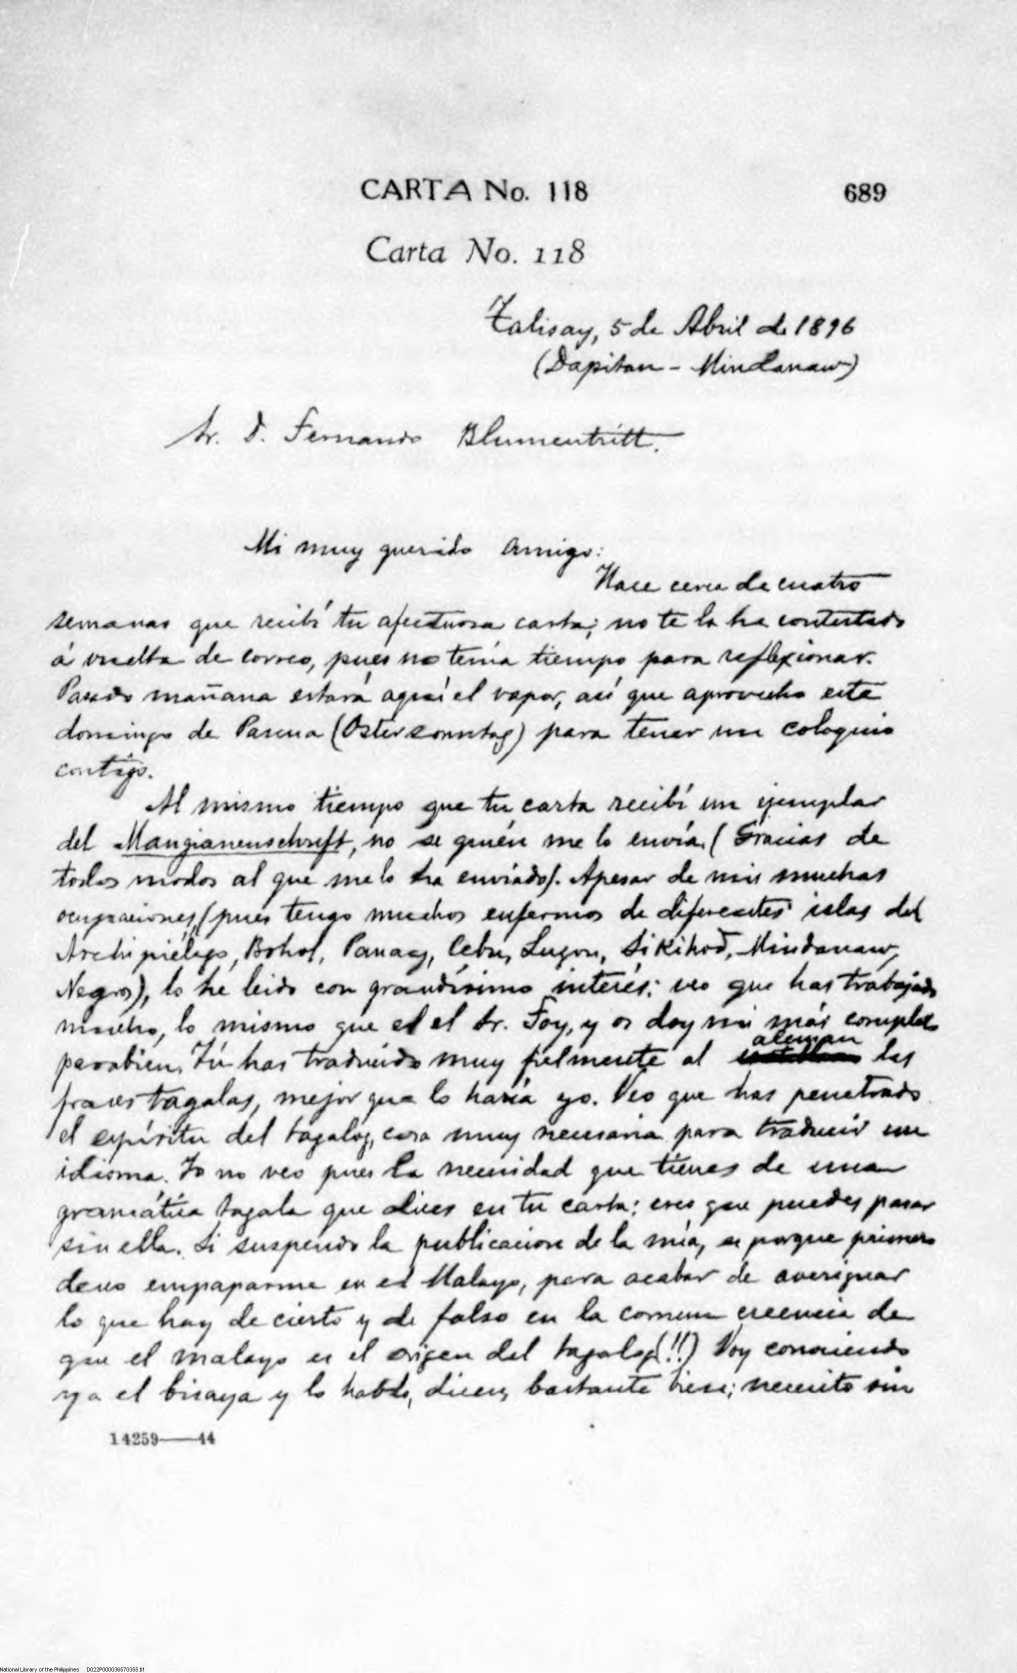 CARTA No. 118
689
Carta No. 118
Talisay, 5 de Abril de 1896
(Dapitan - Mindanaw)
Sr. D. Fernando Blumentritt.
Mi muy querido amigo:
Hace cerca de cuatro
semanas que recibí tu afectuosa carta; no te la he contestado
á vuelta de correo, pues no tenía tiempo para reflexionar.
Pasado mañana estará aquí el vapor, así que aprovecho este
domingo de Pascua (Ostersonntag) para tener un coloquio
contigo.
Al mismo tiempo que tu carta recibí un ejemplar
del Mangianenschrift, no se quién me lo envía. (Gracias de
todos modos al que me lo ha enviado). Apesar de mis muchas
ocupaciones, (pues tengo muchos enfermos de diferentes islas del
Archipiélago, Bohol, Panay, Cebu, Luzon, Sikihod, Mindanaw,
Negros), lo he leido con grandísimo interés; veo que has trabajado
mucho, lo mismo que el Sr. Foy, y os doy mi más completo
parabien. Tú has traducido muy fielmente al alemán las
frases tagalas, mejor que lo haría yo. Veo que has penetrado
el espíritu del tagalog, cosa muy necesaria para traducir un
idioma. Yo no veo pues la necesidad que tienes de una
gramática tagala que dices en tu carta; creo que puedes pasar
sin ella. Si suspendo la publicacion de la mía, es porque primero
deseo empaparme en el Malayo, para acabar de averiguar
lo que hay de cierto y de falso en la comun creencia de
que el malayo es el origen del tagalog(!!) Voy conociendo
ya el bisaya y lo hablo, dicen, bastante bien; necesito sin
14259——44
National Library of the Philippines